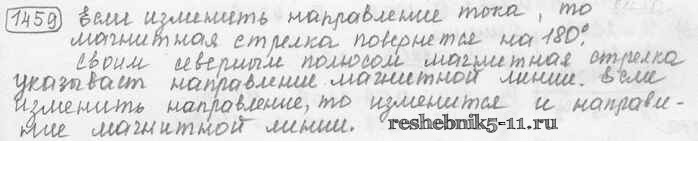 1459 Если изменить направление тока, то
магнитная стрелка повернется на 180°.
Своим северным полюсом магнитная стрелка
указывает направление магнитной линии. Если
изменить направление, то изменится и направле-
ние магнитной линии.
reshebnik5-11.ru